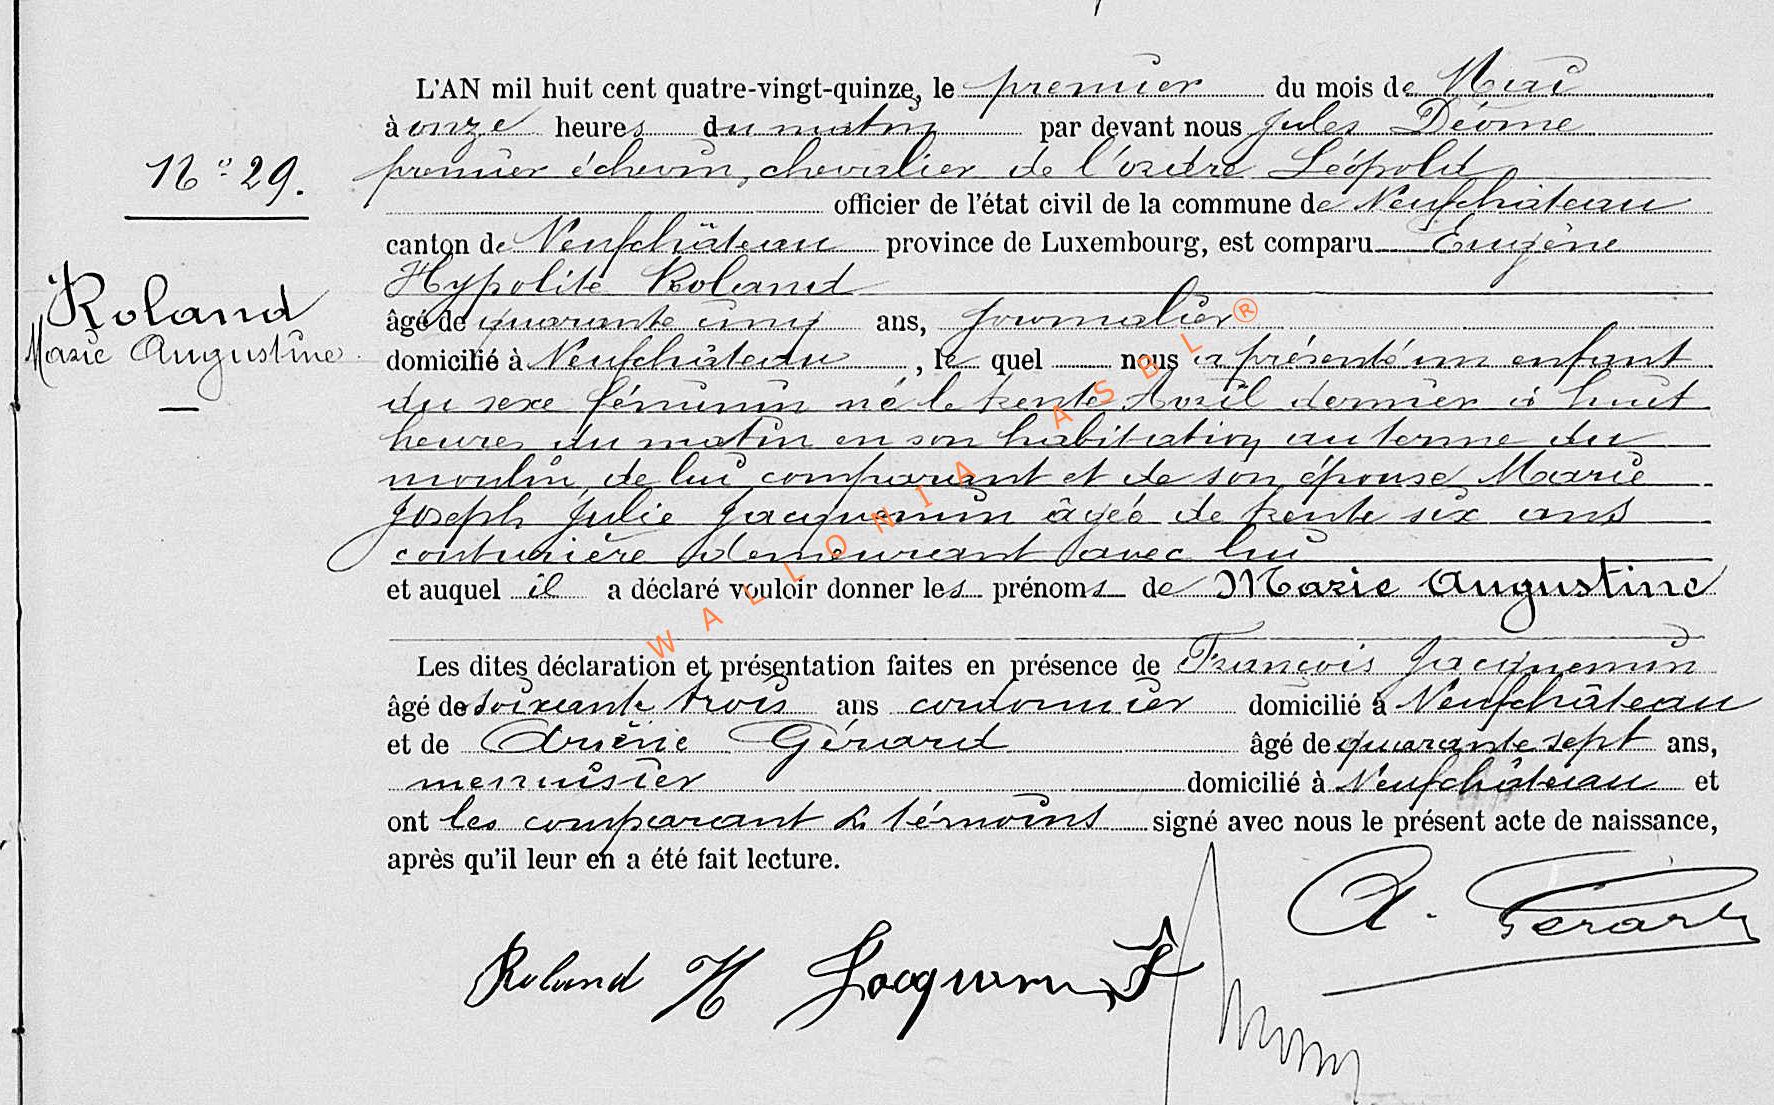 L'AN mil huit cent quatre-vingt-quinze, le premier du mois de Mai
à onze heures du matin par devant nous Jules Déome
premier échevin, chevalier de l'ordre Léopold
N° 29.
officier de l'état civil de la commune de Neufchâteau
canton de Neufchâteau province de Luxembourg, est comparu Eugène
Hypolite Roland
Roland
Marie Augustine
âgé de quarante cinq ans, journalier
domicilié à Neufchâteau, le quel nous a présenté un enfant
du sexe féminin né le trente Avril dernier à huit
heures du matin en son habitation au terme du
moulin, de lui comparant et de son épouse Marie
Joseph Julie Jacquemin âgée de trente six ans
couturière demeurant avec lui
et auquel il a déclaré vouloir donner les prénoms de Marie Augustine
Les dites déclaration et présentation faites en présence de François Jacquemin
âgé de soixante trois ans cordonnier domicilié à Neufchâteau
et de Arsène Gérard âgé de quarante sept ans,
menuisier domicilié à Neufchâteau et
ont les comparant & témoins signé avec nous le présent acte de naissance,
après qu'il leur en a été fait lecture.
A. Gérard
Roland H Jacquemin F
WALLONIA ASBL®